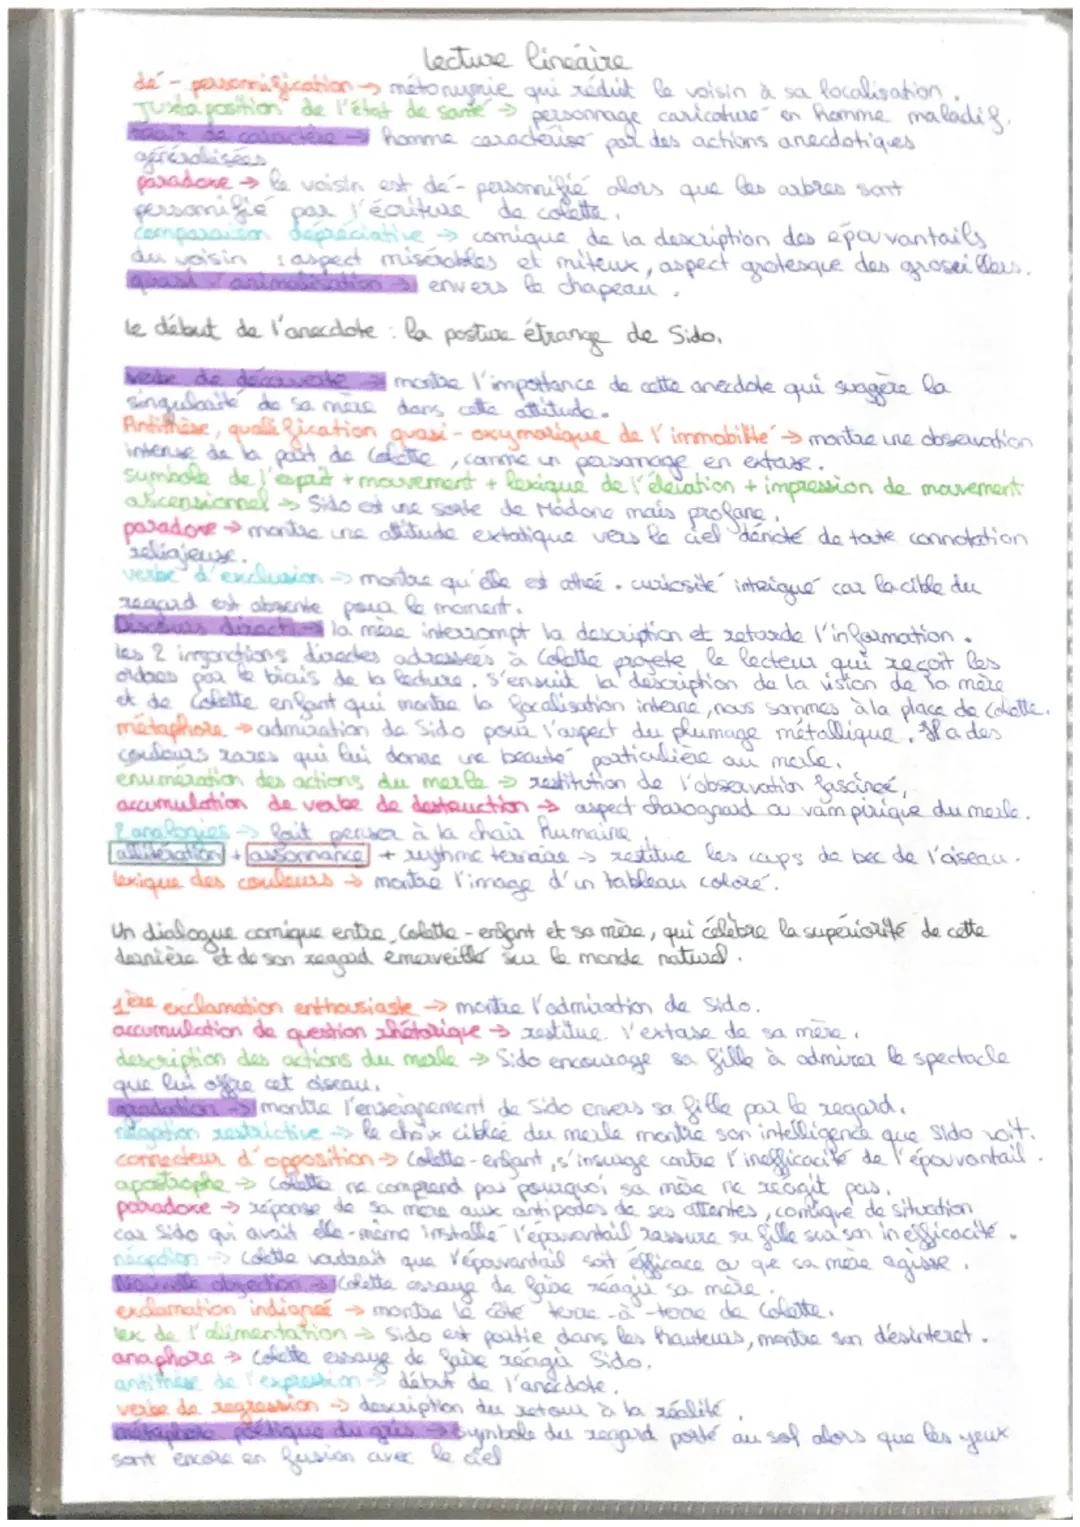 Lecture linéaire
dé-personnification → métonymie qui réduit le voisin à sa localisation.
Juxtaposition de l'état de santé → personnage caricaturé en homme maladif.
trait de caractère → homme caractérisé par des actions anecdotiques
généralisées
paradoxe → le voisin est dé-personnifié alors que les arbres sont
personnifié par l'écriture de colette.
comparaison dépréciative → comique de la description des épouvantails
du voisin : aspect misérables et miteux, aspect grotesque des groseillers.
quasi animalisation → envers le chapeau.
Le début de l'anecdote : la posture étrange de Sido.
verbe de découverte → montre l'importance de cette anecdote qui suggère la
singularité de sa mère dans cette attitude.
Antithèse, qualification quasi-oxymorique de l'immobilité → montre une observation
intense de la part de Colette, comme un personnage en extase.
symbole de l'esprit + mouvement + lexique de l'élévation + impression de mouvement
ascensionnel → Sido est une sorte de Madone mais profane.
paradoxe → montre une attitude extatique vers le ciel dénoté de toute connotation
religieuse.
verbe d'exclusion → montre qu'elle est athée. curiosité intrigué car la cible du
regard est absente pour le moment.
Discours direct → la mère interrompt la description et retarde l'information.
les 2 injonctions directes adressées à Colette projete le lecteur qui reçoit les
ordres par le biais de la lecture. s'ensuit la description de la vision de la mère
et de Colette enfant qui montre la focalisation interne, nous sommes à la place de Colette.
métaphore → admiration de Sido pour l'aspect du plumage métallique. Il a des
couleurs rares qui lui donne une beauté particulière au merle.
enumération des actions du merle → restitution de l'observation fascinée,
accumulation de verbe de destruction → aspect charognard ou vampirique du merle.
2 analogies → fait penser à la chair humaine
allitération + assonnance + rythme ternaire → restitue les coups de bec de l'oiseau.
lexique des couleurs → montre l'image d'un tableau coloré.
Un dialogue comique entre Colette-enfant et sa mère, qui célèbre la supériorité de cette
dernière et de son regard émerveillé sur le monde naturel.
1ère exclamation enthousiaste → montre l'admiration de Sido.
accumulation de question rhétorique → restitue l'extase de sa mère.
description des actions du merle → Sido encourage sa fille à admirer le spectacle
que lui offre cet oiseau.
gradation → montre l'enseignement de Sido envers sa fille par le regard.
négation restrictive → le choix ciblée du merle montre son intelligence que Sido voit.
connecteur d'opposition → Colette-enfant, s'insurge contre l'inefficacité de l'épouvantail.
apostrophe → Colette ne comprend pas pourquoi sa mère ne réagit pas.
paradoxe → réponse de sa mère aux antipodes de ses attentes, comique de situation
car Sido qui avait elle-même installé l'épouvantail rassure sa fille sur son inefficacité.
négation → Colette voudrait que l'épouvantail soit éfficace ou que sa mère agisse.
Nouvelle objection → Colette essaye de faire réagir sa mère.
exclamation indignée → montre le côté terre-à-terre de Colette.
lex de l'alimentation → Sido est partie dans les hauteurs, montre son désinteret.
anaphore → Colette essaye de faire réagir Sido.
antithèse de l'expression → début de l'anecdote.
verbe de regression → description du retour à la réalité.
métaphore poétique du gris → symbole du regard porté au sol alors que les yeux
sont encore en fusion avec le ciel